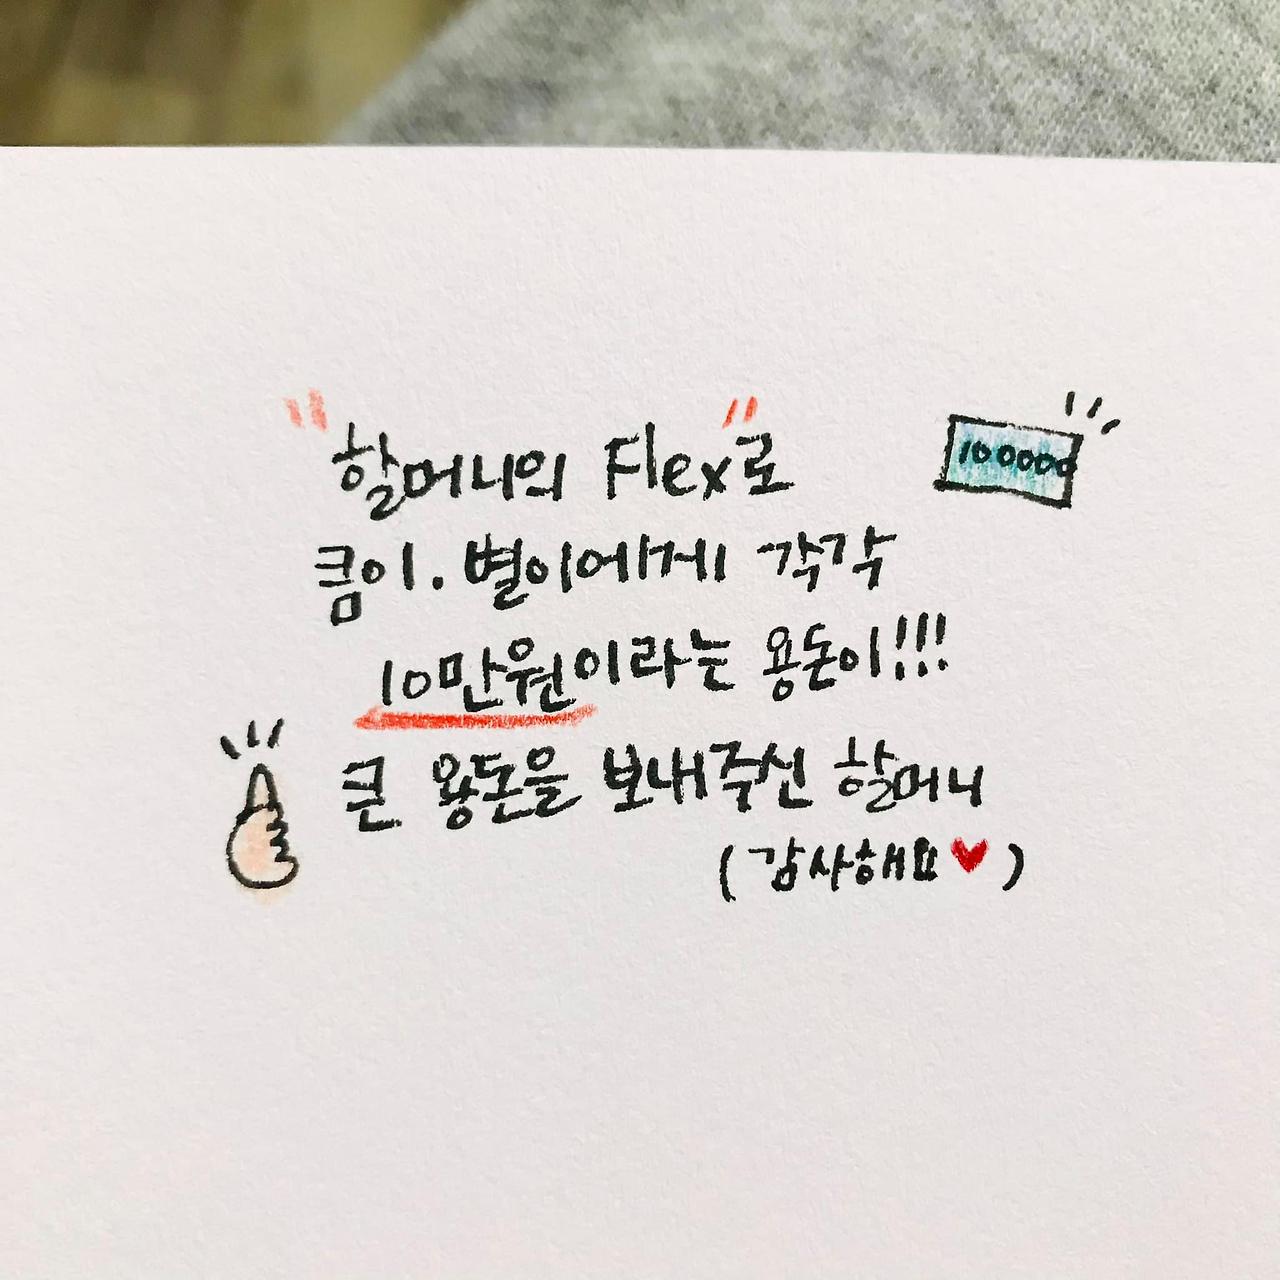 "할머니의 Flex"로
100000
큼이. 별이에게 각각
10만원이라는 용돈이!!!
큰 용돈을 보내주신 할머니
(감사해요♥)